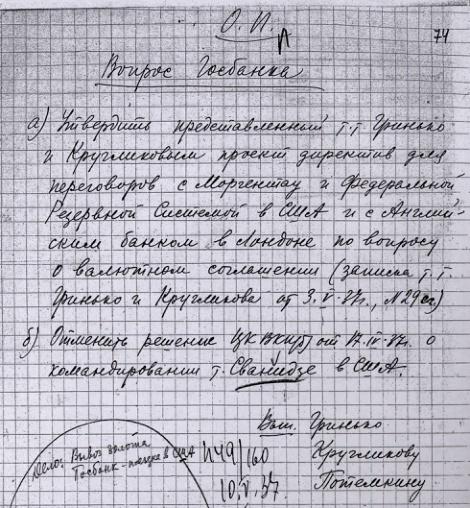 О. П.
74
Вопрос Госбанка
а) Утвердить представленный т.т Гринько
и Кругликовым проект директив для
переговоров с Моргентау и Федеральной
Резервной Системой в США и с Англий-
ским банком в Лондоне по вопросу
о валютном соглашении (записка т.т.
Гринько и Кругликова от 3.V.37г., №29сс)
б) Отменить решение ЦК ВКП(б) от 17.IV.37. о
командировании т. Сванидзе в США.
Вып. Гринько
Кругликову
Потемкину
Дело: Вывоз золота
Госбанк - поездке в США
П49/160
10.V.37.